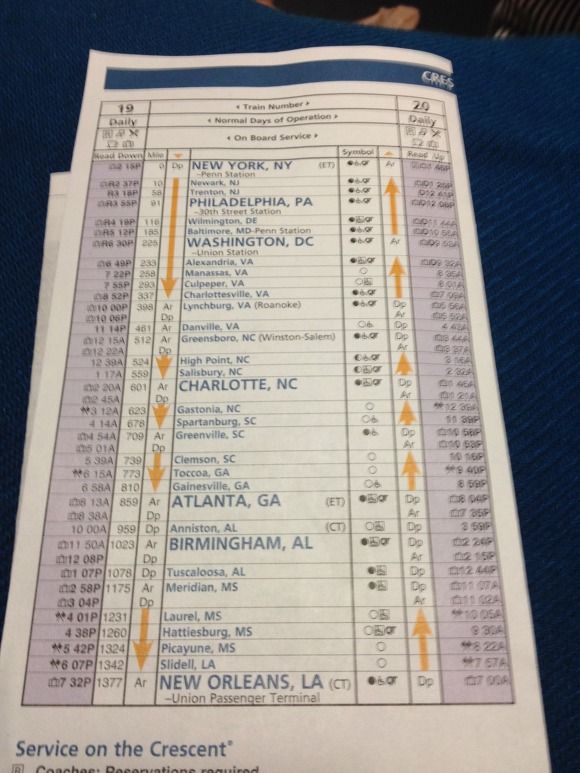 CRES
19 ◂ Train Number ▸ 20
Daily ◂ Normal Days of Operation ▸ Daily
◂ On Board Service ▸
Read Down Mile Symbol Read Up
2 15P 0 Dp NEW YORK, NY (ET) Ar
–Penn Station
R2 37P 10 Newark, NJ
R3 18P 58 Trenton, NJ
R3 55P 91 PHILADELPHIA, PA
–30th Street Station
R4 19P 116 Wilmington, DE
R5 12P 185 Baltimore, MD-Penn Station
R6 30P 225 WASHINGTON, DC Ar
–Union Station
6 49P 233 Alexandria, VA
7 22P 258 Manassas, VA
7 55P 293 Culpeper, VA
8 52P 337 Charlottesville, VA
10 00P 398 Ar Lynchburg, VA (Roanoke) Dp
10 06P Dp Ar
11 14P 461 Ar Danville, VA
12 15A 512 Ar Greensboro, NC (Winston-Salem) Dp
12 22A Dp Ar
12 39A 524 High Point, NC
1 17A 559 Salisbury, NC
2 20A 601 Ar CHARLOTTE, NC Dp
2 45A Dp Ar
3 12A 623 Gastonia, NC
4 14A 676 Spartanburg, SC
4 54A 709 Ar Greenville, SC Dp
5 01A Dp Ar
5 39A 739 Clemson, SC
6 15A 773 Toccoa, GA
6 58A 810 Gainesville, GA
8 13A 859 Ar ATLANTA, GA (ET) Dp
8 38A Dp Ar
10 00A 959 Dp Anniston, AL (CT) Dp
11 50A 1023 Ar BIRMINGHAM, AL Dp
12 08P Dp Ar
1 07P 1078 Dp Tuscaloosa, AL Dp
2 58P 1175 Ar Meridian, MS Dp
3 04P Dp Ar
4 01P 1231 Laurel, MS
4 38P 1260 Hattiesburg, MS
5 42P 1324 Picayune, MS
6 07P 1342 Slidell, LA
7 32P 1377 Ar NEW ORLEANS, LA (CT) Dp
–Union Passenger Terminal
Service on the Crescent®
R Coaches: Reservations required